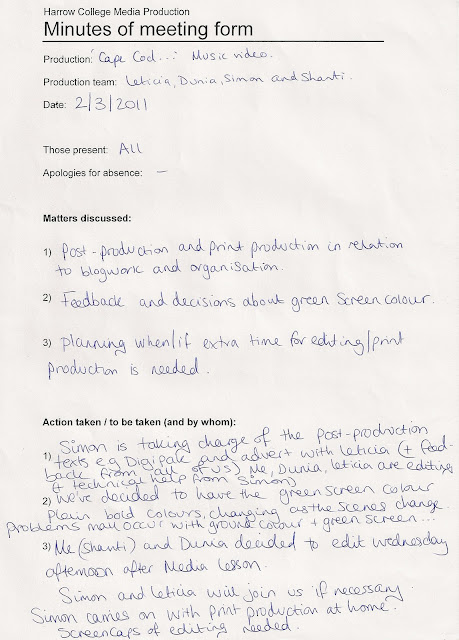 Harrow College Media Production
Minutes of meeting form
Production: 'Cape Cod...' Music video.
Production team: Leticia, Dunia, Simon and Shanti.
Date: 2/3/2011
Those present: All
Apologies for absence: –
Matters discussed:
1) Post-production and print production in relation
to blogwork and organisation.
2) Feedback and decisions about green screen colour.
3) planning when/if extra time for editing/print
production is needed.
Action taken / to be taken (and by whom):
1) Simon is taking charge of the post-production
texts e.g Digipak and advert with leticia (+ feed-
back from all of us) Me, Dunia, leticia are editing
(+ technical help from Simon)
2) We've decided to have the green screen colour
Plain bold colours, changing as the scenes change.
Problems may occur with ground colour + green screen...
3) Me (Shanti) and Dunia decided to edit wednesday
afternoon after Media Lesson.
Simon and leticia will join us if necessary
Simon carries on with print production at home.
Screencaps of editing needed.